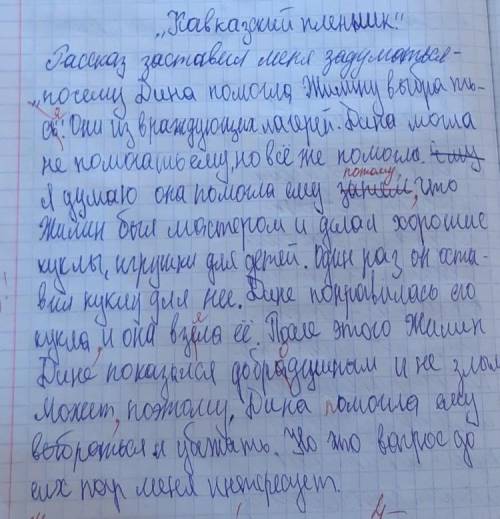 „Кавказский пленник."
Рассказ заставил меня задуматься -
„почему Дина помогла Жилину выбраться
ся". Они из враждующих лагерей. Дина могла
не помогать ему, но всё же помогла.
потому
Я думаю она помогла ему затем, что
Жилин был мастером и делал хорошие
куклы, игрушки для детей. Один раз он оста-
вил куклу для неё. Дине понравилась его
кукла, и она взяла её. После этого Жилин
Дине показался добродушным и не злым
Может, поэтому, Дина помогла ему
выбраться и убежать. Но это вопрос до
сих пор меня интересует.
4-